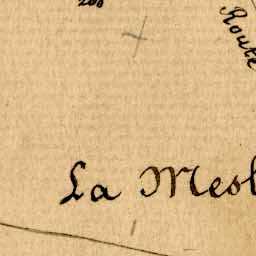 200
Route
La Mesl